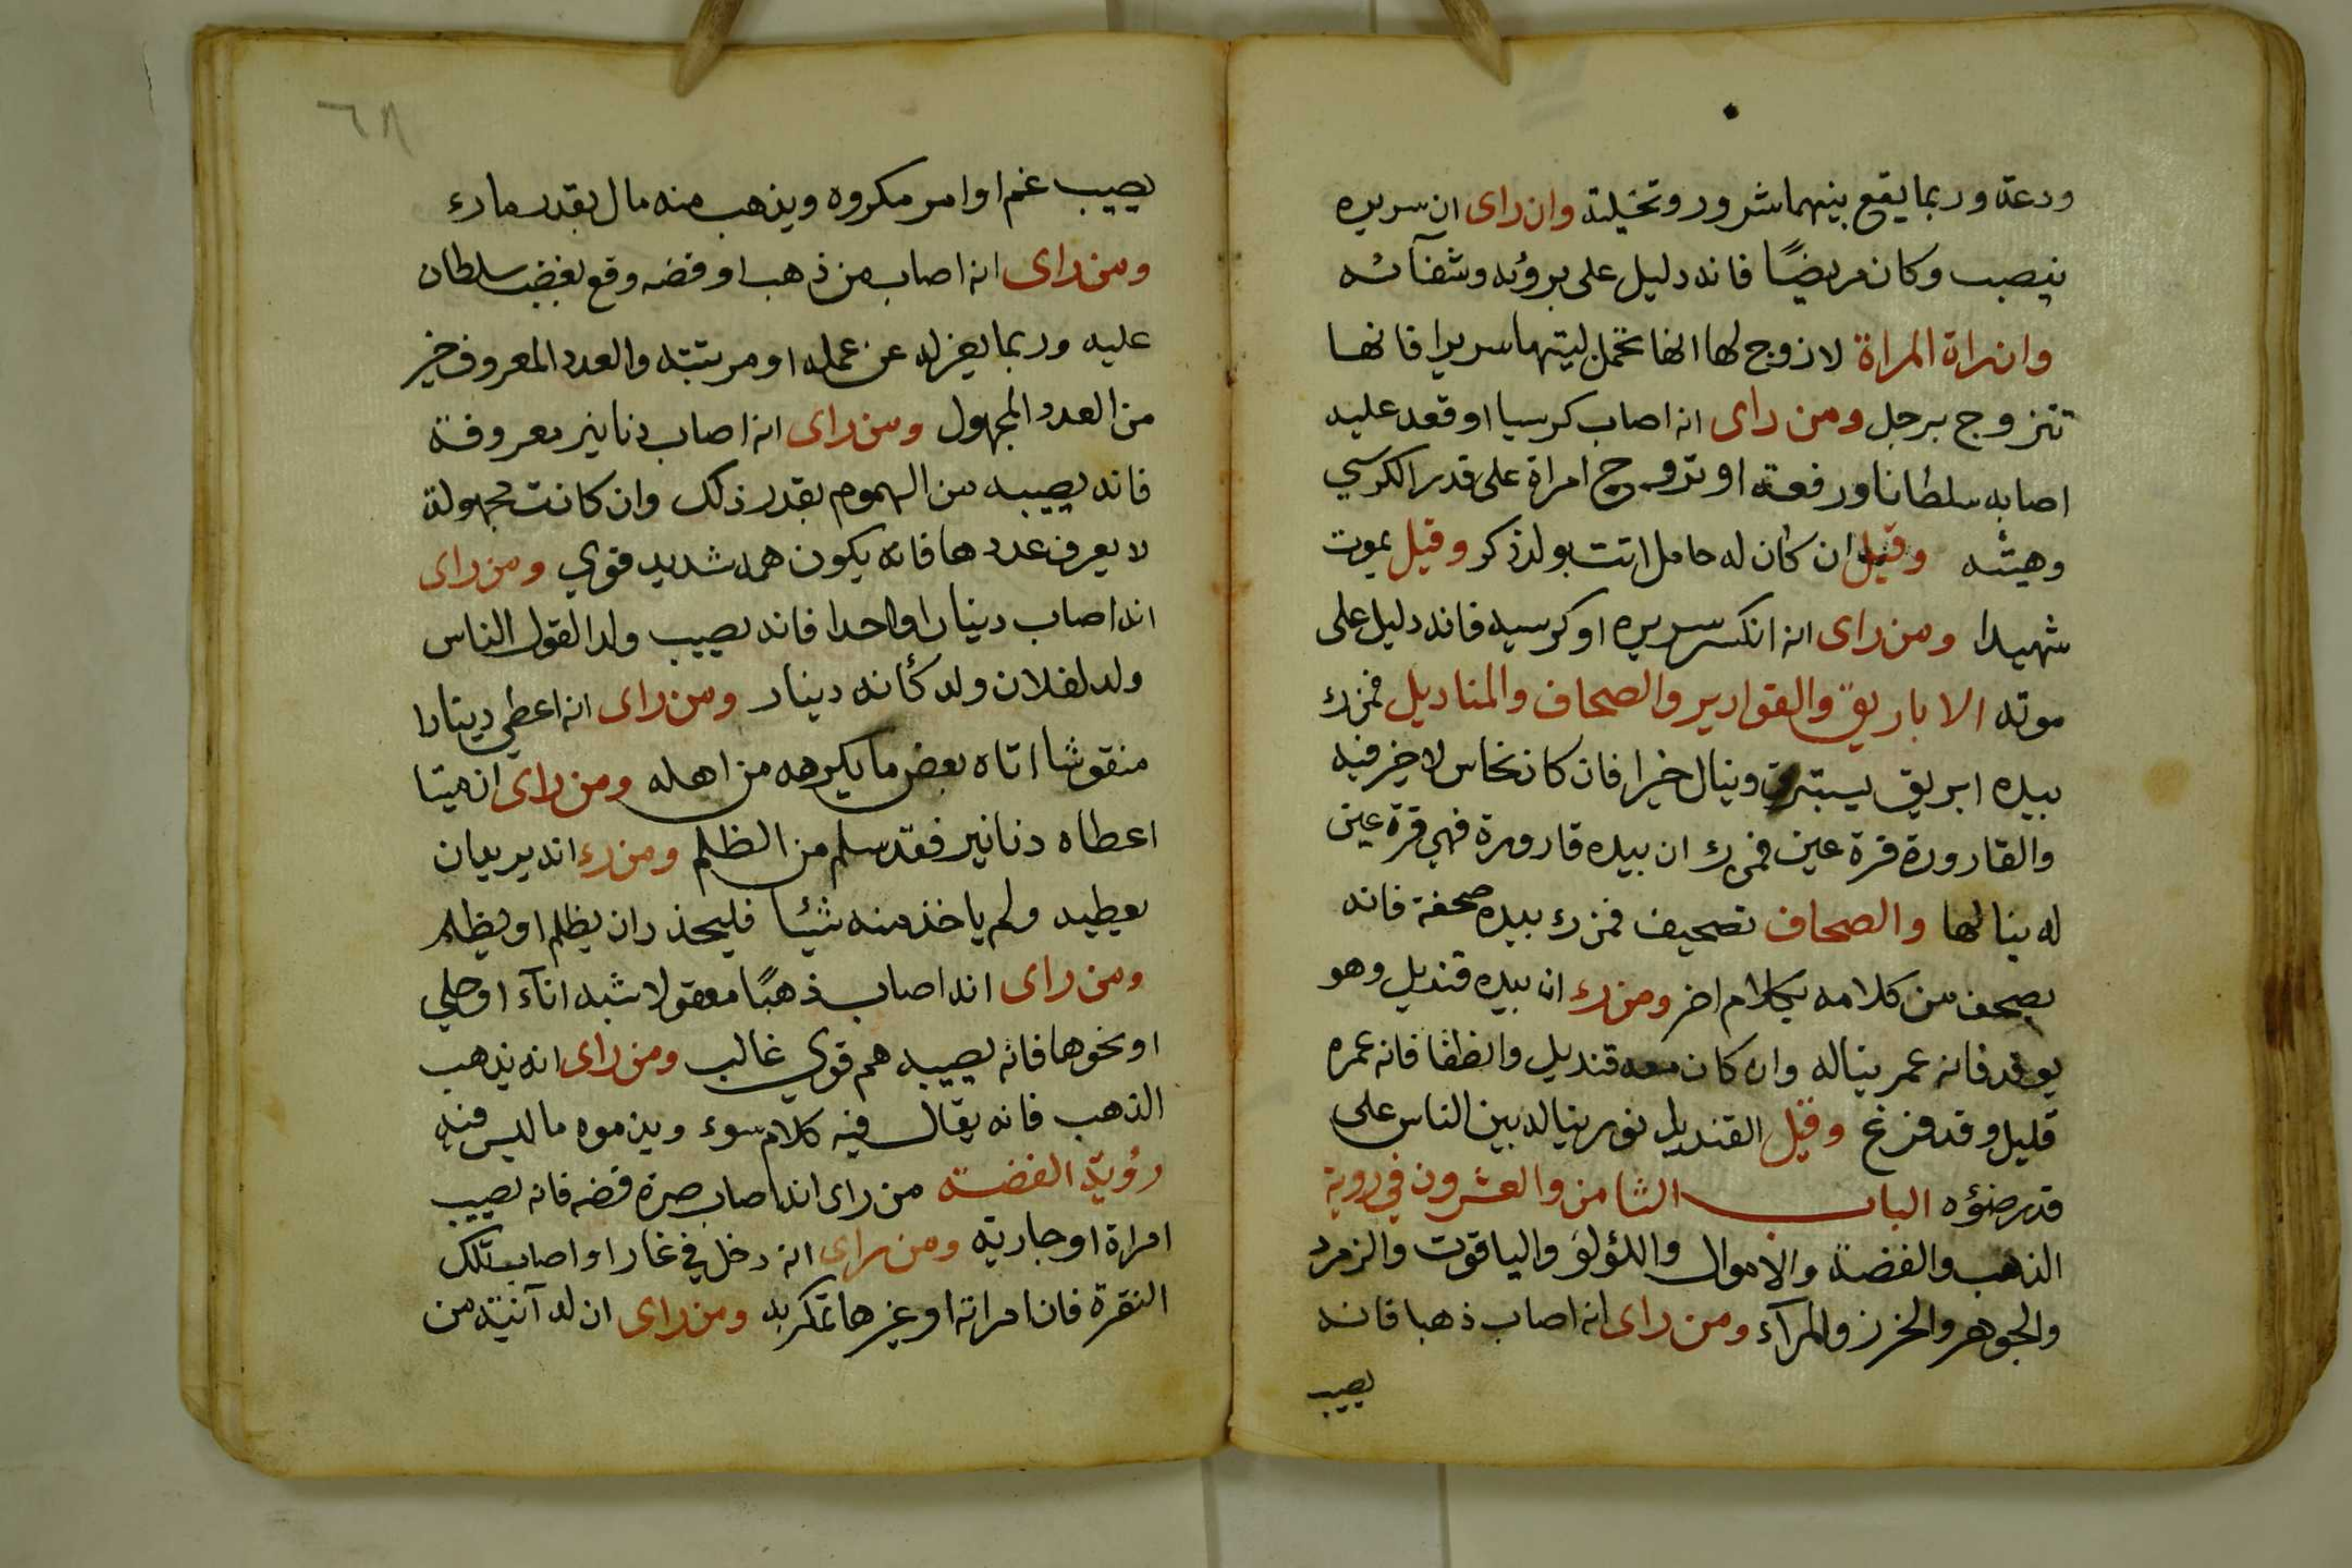 ودعة وربما يقع بينهما شرور وتخيلة وان راى ان سريره
ينصب وكان مريضًا فانه دليل على بروئه وشفآئه
وان راة المراة لا زوج لها انها تحمل ليتها سريرا فانها
تتزوج برجل ومن راى انه اصاب كرسيا او قعد عليه
اصابه سلطانا ورفعة او تزوج امراة على قدر الكرسي
وهيئته وقيل ان كان له حامل اتت بولد ذكر وقيل يموت
شهيدا ومن راى انه انكسر سريره او كرسيه فانه دليل على
موته الاباريق والقوارير والصحاف والمناديل فمن رء
بيده ابريق يستبرق وينال خيرا فان كان نحاس لا خير فيه
والقارورة قرة عين فمن رء ان بيده قارورة فهي قرة عين
له ينالها والصحاف تصحيف فمن رء بيده صحفة فانه
يصحف من كلامه بكلام اخر ومن رء ان بيده قنديل وهو
يوقد فانه عمر يناله وان كان معه قنديل وانطفا فانه عمره
قليل وقد فرغ وقيل القنديل نور يناله بين الناس على
قدر ضوؤه الباب الثامن والعشرون في روية
الذهب والفضة والاموال واللؤلؤ والياقوت والزمرد
والجوهر والخرز والمرآء ومن راى انه اصاب ذهبا فانه
يصيب
٦٨
يصيب غم او امر مكروه ويذهب منه مال بقدر ما رء
ومن راى انه اصاب من ذهب او فضه وقع بغضب سلطان
عليه وربما يعزله عن عمله او مرتبته والعدد المعروف خير
من العدد المجهول ومن راى انه اصاب دنانير معروفة
فانه يصيبه من الهموم بقدر ذلك وان كانت مجهولة
لا يعرف عددها فانه يكون همه شديد قوي ومن راى
انه اصاب دينارا واحدا فانه يصيب ولدا لقول الناس
ولد لفلان ولد كأنه دينار ومن راى انه اعطي دينارا
منقوشا اتاه بعض ما يكرهه من اهله ومن راى ان ميتا
اعطاه دنانير فقد سلم من الظلم ومن رء انه يريد ان
يعطيه ولم ياخذ منه شيئا فليحذر ان يظلم او يظلم
ومن راى انه اصاب ذهبًا معقولا شبه انآء او حلي
او نحوها فانه يصيبه هم قوي غالب ومن راى انه يذهب
الذهب فانه يقال فيه كلام سوء ويذموه ما ليس فيه
رؤية الفضة من راى انه اصاب صرة فضه فانه يصيب
امراة او جاريه ومن راى انه دخل في غارا واصاب تلك
النقرة فان امراته او غيرها تمكر به ومن راى ان له آنية من